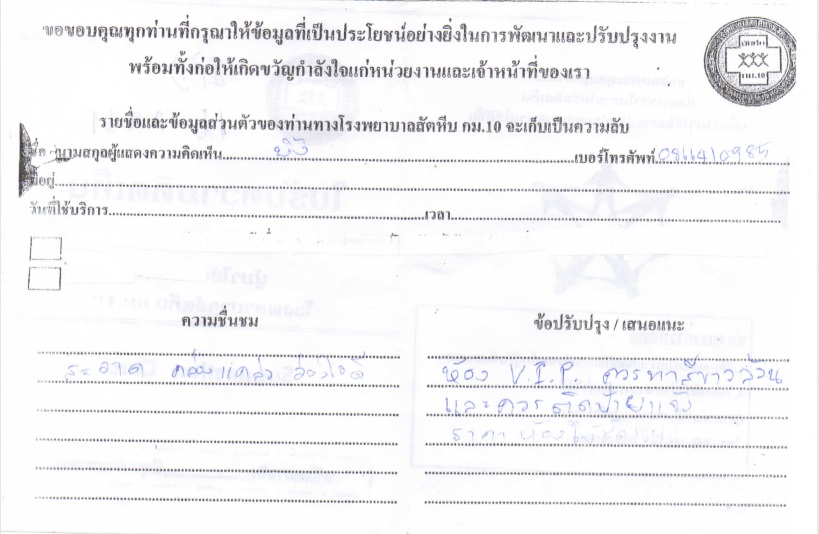 ขอขอบคุณทุกท่านที่กรุณาให้ข้อมูลที่เป็นประโยชน์อย่างยิ่งในการพัฒนาและปรับปรุงงาน
พร้อมทั้งก่อให้เกิดขวัญกำลังใจแก่หน่วยงานและเจ้าหน้าที่ของเรา
กม.10
รายชื่อและข้อมูลส่วนตัวของท่านทางโรงพยาบาลสัตหีบ กม.10 จะเก็บเป็นความลับ
ชื่อ นามสกุลผู้แสดงความคิดเห็น..........เบอร์โทรศัพท์.0866410985
ที่อยู่..........
วันที่ใช้บริการ..........เวลา..........
ความชื่นชม
ข้อปรับปรุง / เสนอแนะ
สะอาด คล่องแคล่ว
ห้อง V.I.P. ควรทาสีขาวล้วน
และควรติดป้ายแจ้ง
ราคา ห้อง